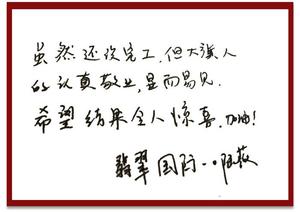 虽然还没完工,但大漢人
的认真敬业,显而易见.
希望结果令人惊喜.加油!
翡翠国际..